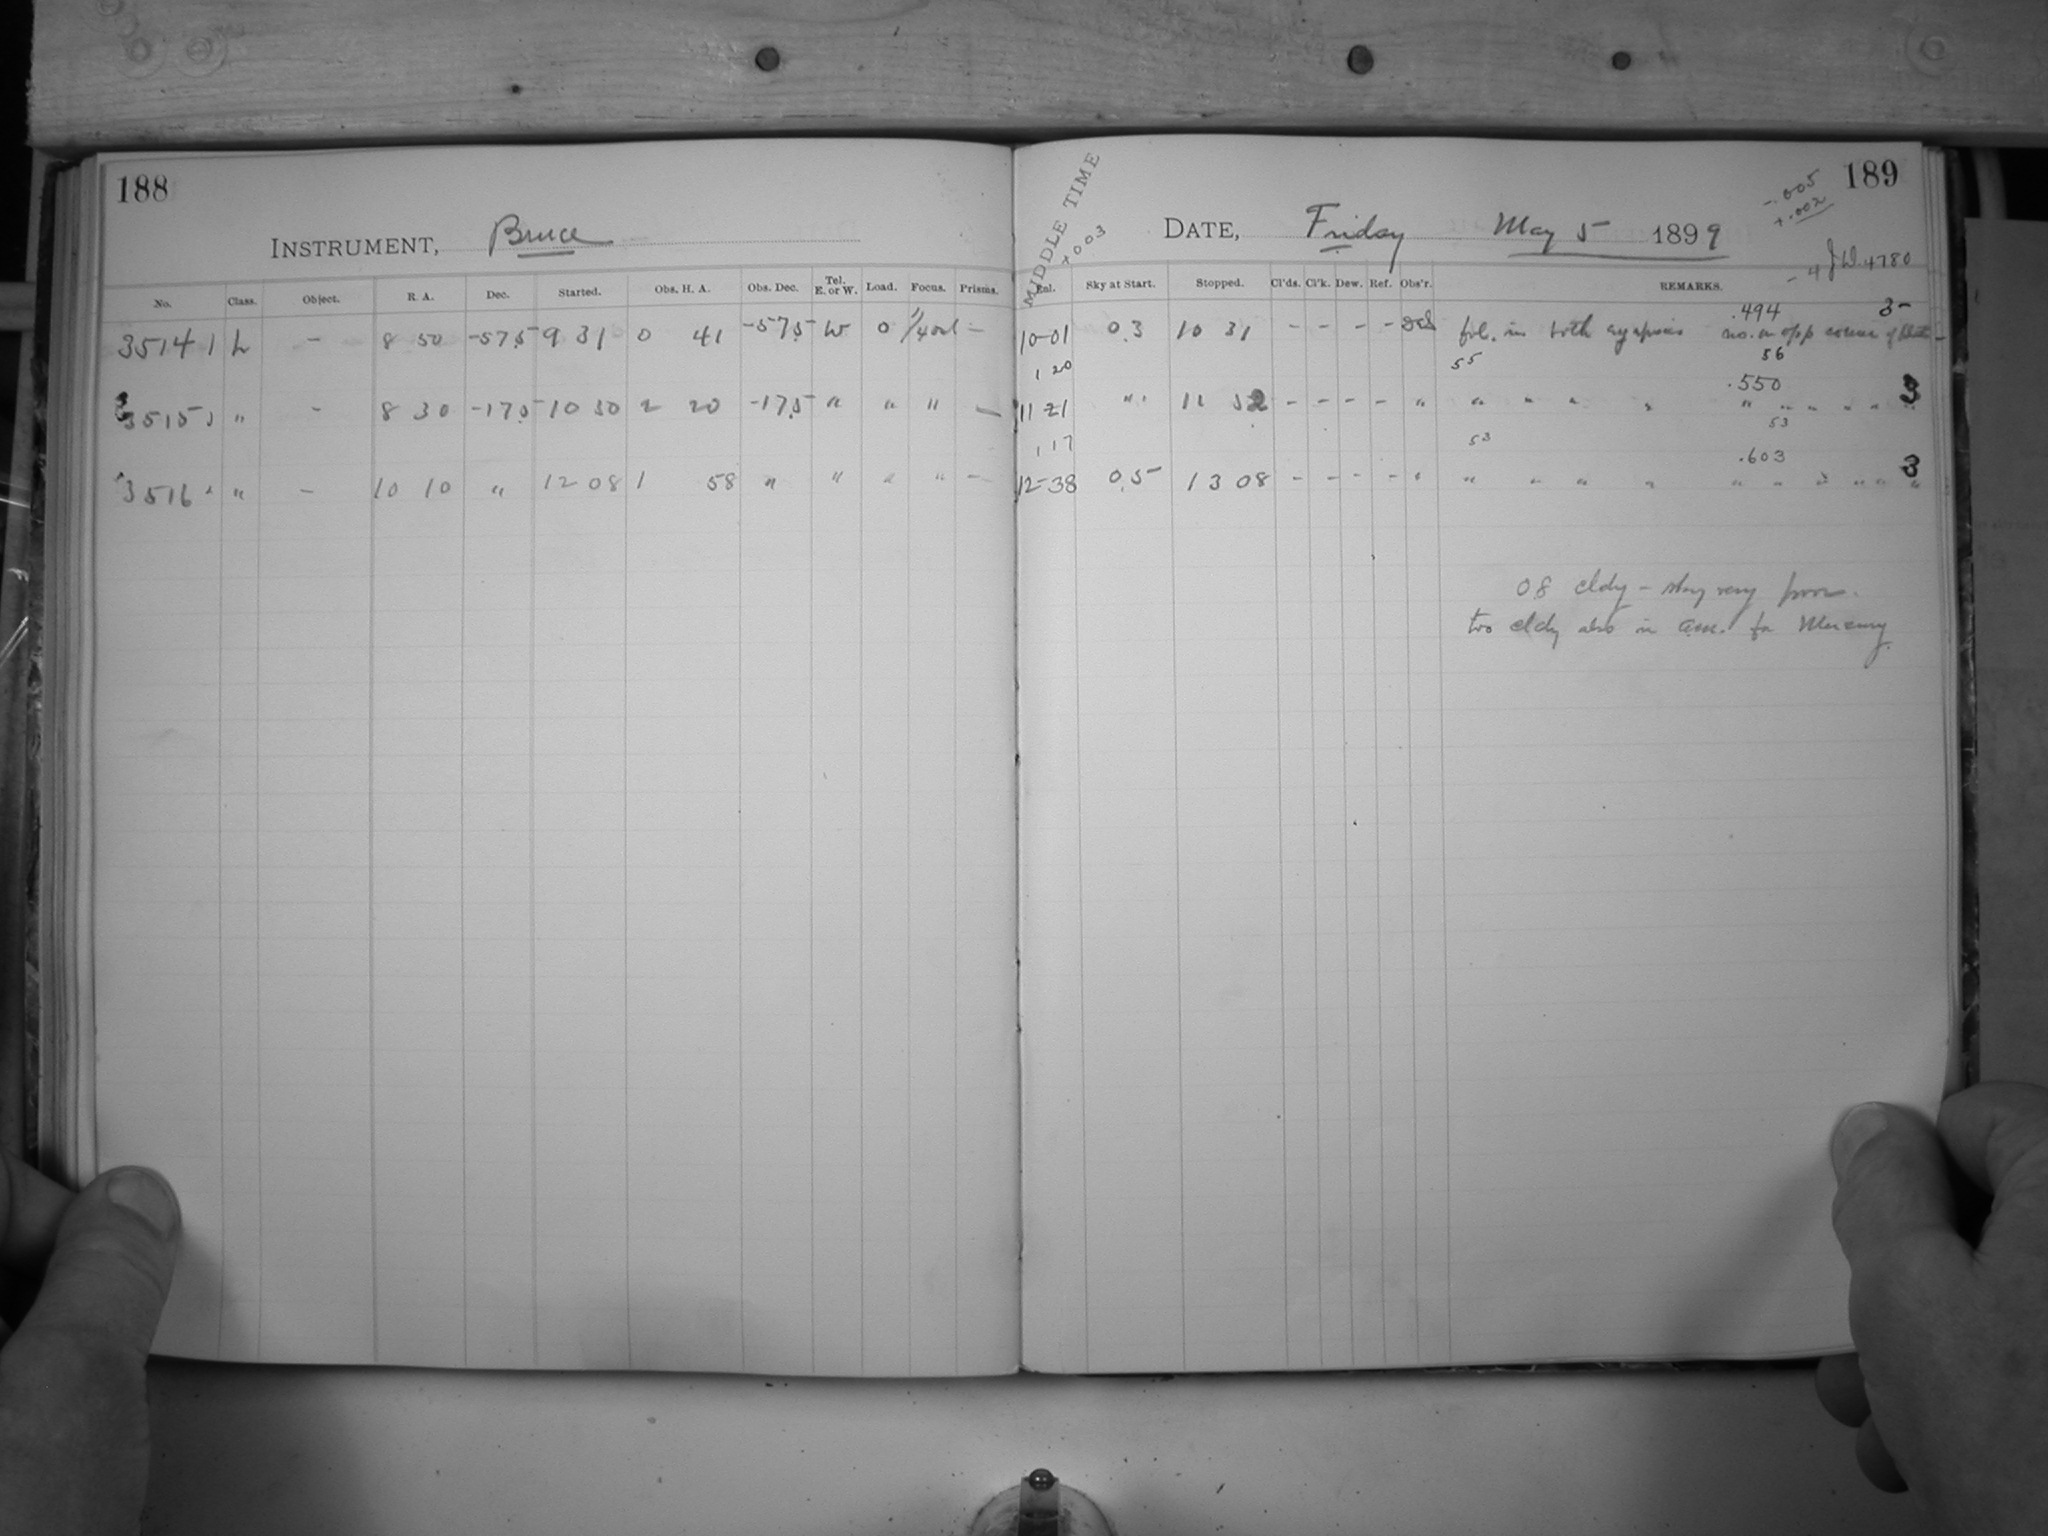 188
INSTRUMENT, Bruce
No. Class. Object. R. A. Dec. Started. Obs. H. A. Obs. Dec. Tel. E. or W. Load. Focus. Prisms.
35141 L - 8 50 -57.5 9 31 0 41 -57.5 W 0 -
3515 " - 8 30 -17.5 10 50 2 20 -17.5 " " " -
3516 " - 10 10 " 12 08 1 58 " " " " -
189
MIDDLE TIME
+003
DATE, Friday May 5 1899
-.005
+.002
-4 J.D. 4780
Enl. Sky at Start. Stopped. Cl'ds. Cl'k. Dew. Ref. Obs'r. REMARKS.
.494 3-
10-01 0.3 10 31 - - - - fol. in both no. in opp corner of
1 20 55 56
.550 3
11 21 " 11 52 - - - - " " " " " " " " " " "
1 17 53 53
.603 3
12-38 0.5 13 08 - - - - " " " " " " " " " " "
08 cldy - very poor.
too cldy also in a.m. for Mercury